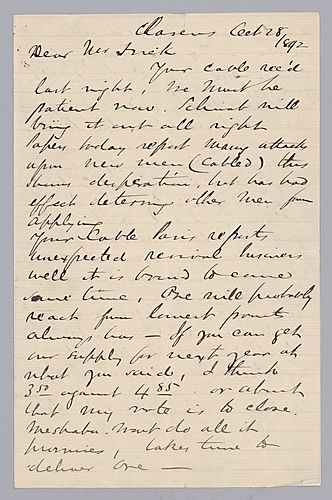 Clarens Oct 28/1892
Dear Mr Frick
Your cable rec'd
last night, We must be
patient now. Schwab will
bring it out all right
Papers today report many attacks
upon new men (cabled) this
shows desperation, but has bad
effect deterring other men from
applying
Your Cable Paris reports
unexpected revival business
well it is bound to come
some time, Ore will probably
react from lowest point
always has — If you can get
our supply for next year at
what you said, I think
3.50 against 4.85 or about
that my vote is to close.
Mesaba. wont do all it
promises, takes time to
deliver ore —